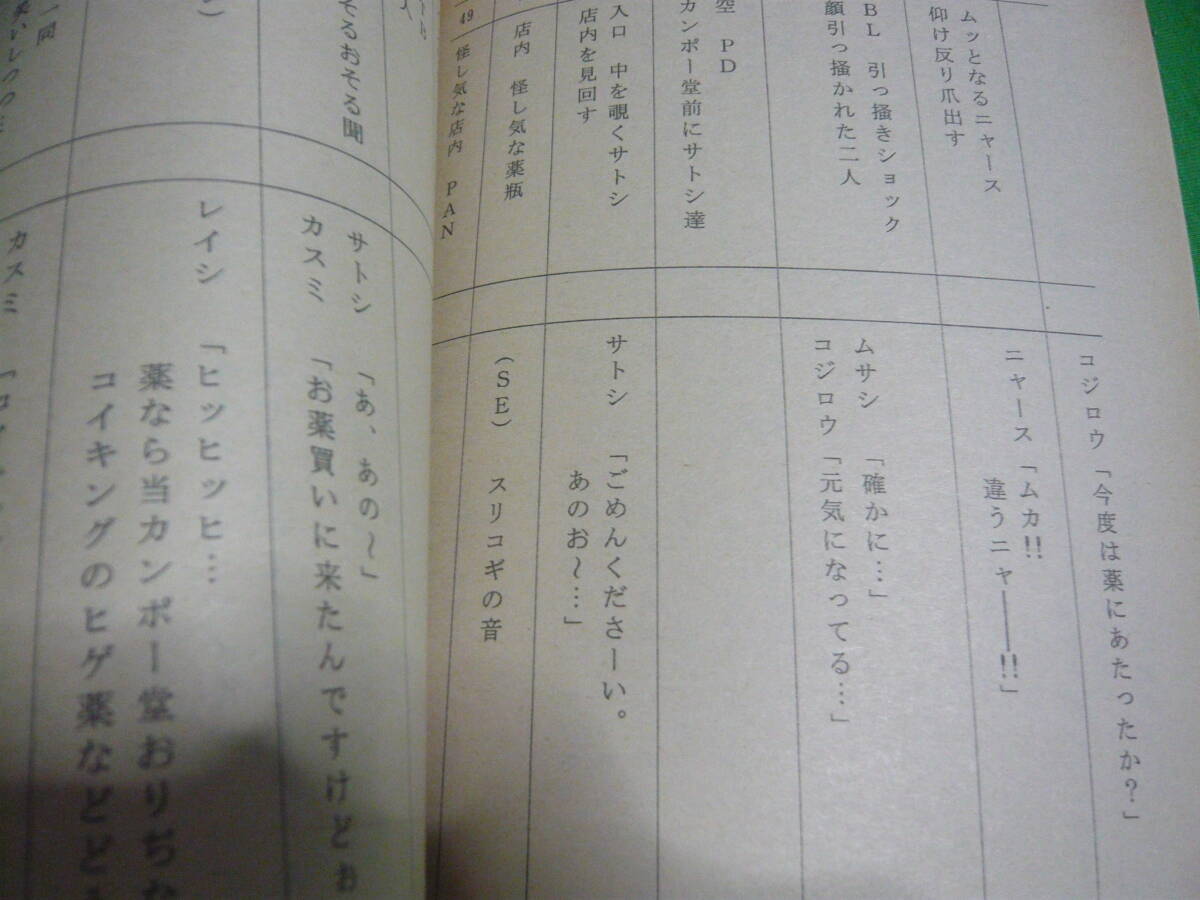 コジロウ「今度は薬にあたったか?」
ムッとなるニャース
仰け反り爪出す
ニャース「ムカ!!
違うニャ――!!」
BL 引っ掻きショック
顔引っ掻かれた二人
ムサシ「確かに…」
コジロウ「元気になってる…」
空 PD
カンポー堂前にサトシ達
入口 中を覗くサトシ
店内を見回す
サトシ「ごめんくださーい。
あのお〜…」
店内 怪し気な薬瓶
(SE) スリコギの音
49
怪し気な店内 PAN
サトシ「あ、あの〜」
カスミ「お薬買いに来たんですけどぉ
るおそる聞
レイシ「ヒッヒッヒ…
薬なら当カンポー堂おりぢな
コイキングのヒゲ薬などど
一同
カスミ「コ